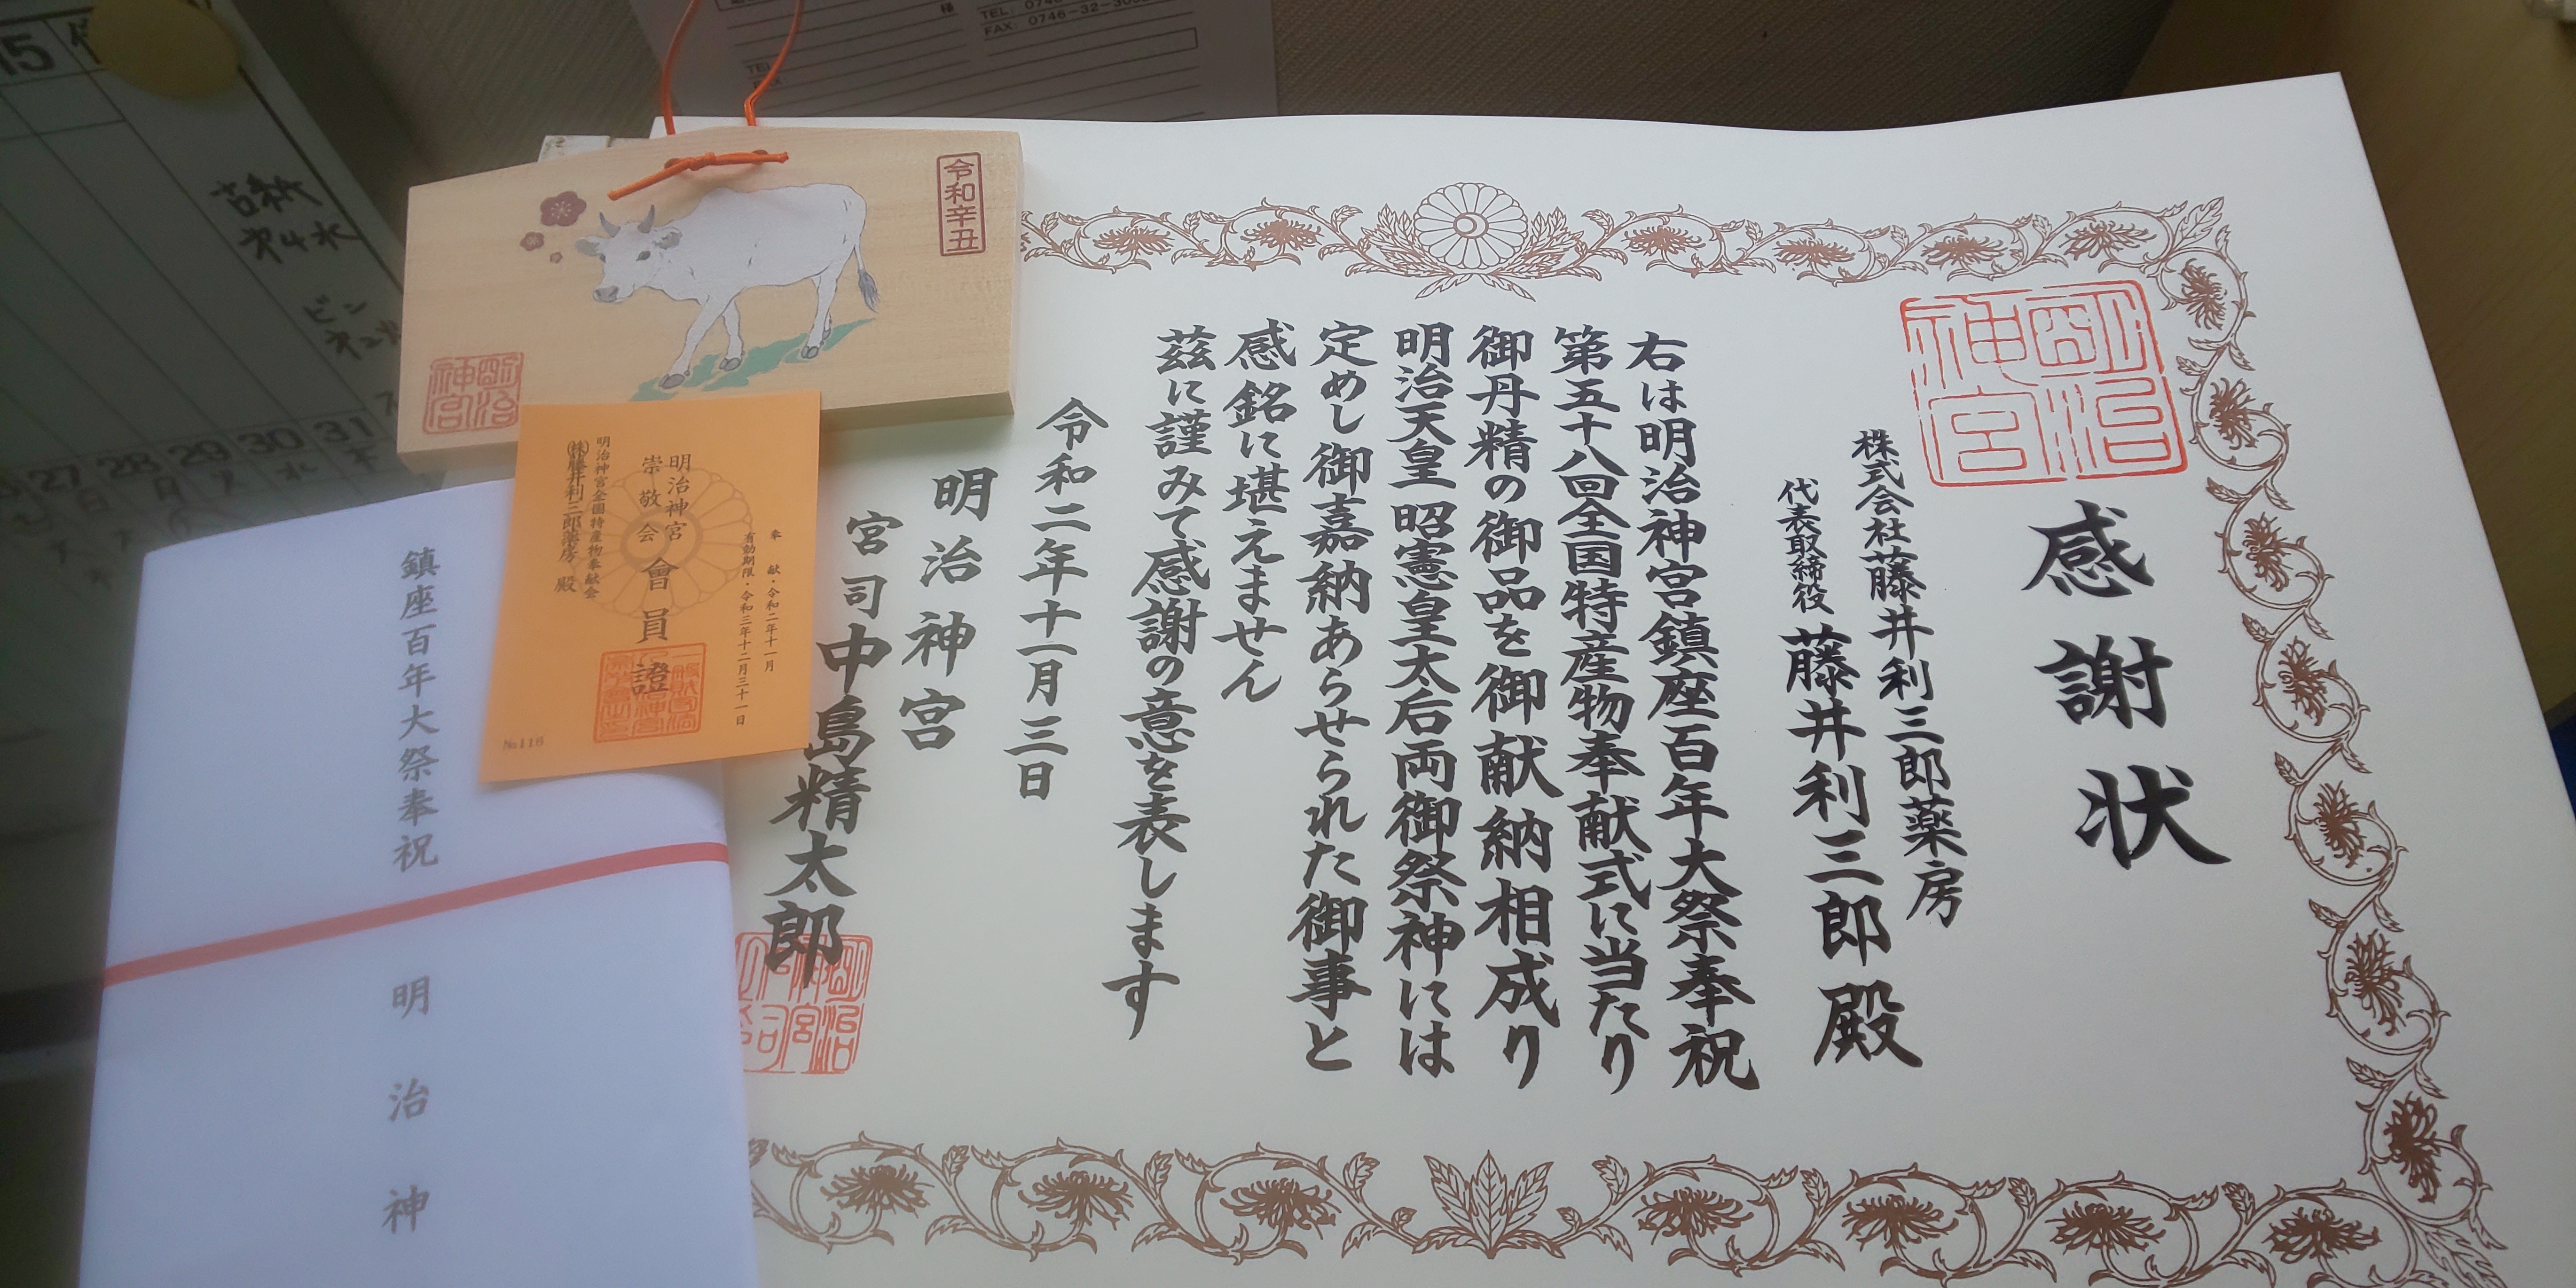 感謝状
株式会社藤井利三郎薬房
代表取締役 藤井利三郎殿
右は明治神宮鎮座百年大祭奉祝
第五十八回全国特産物奉献式に当たり
御丹精の御品を御献納相成り
明治天皇 昭憲皇太后両御祭神には
定めし御嘉納あらせられた御事と
感銘に堪えません
茲に謹みて感謝の意を表します
令和二年十一月三日
明治神宮
宮司 中島精太郎
明治神宮
令和辛丑
明治神宮
奉献・令和二年十一月
有効期限・令和三年十二月三十一日
明治神宮
崇敬会
會員證
明治神宮全国特産物奉献会
㈱藤井利三郎薬房 殿
№116
鎮座百年大祭奉祝
明治神
様
TEL: 074
FAX: 0746-32-30
TEL
15
古紙
ビン
27 28 29 30 31
日 月 火 水 木